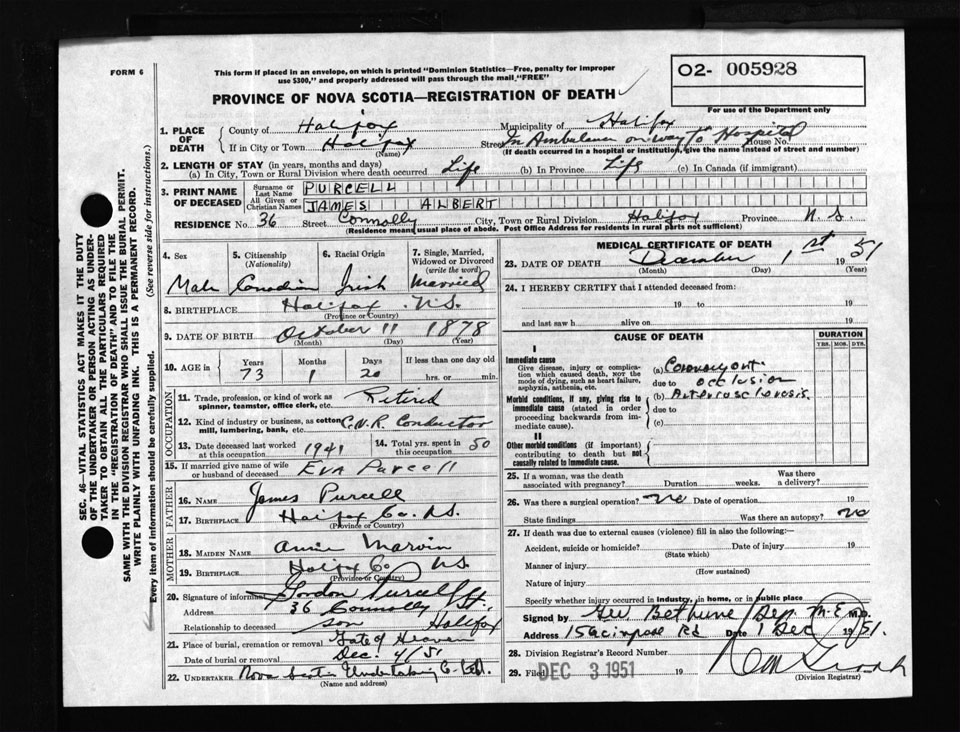 FORM 6
This form if placed in an envelope, on which is printed "Dominion Statistics—Free, penalty for improper
use $300," and properly addressed will pass through the mail "FREE"
O2- 005928
For use of the Department only
PROVINCE OF NOVA SCOTIA—REGISTRATION OF DEATH
1. PLACE OF DEATH
County of Halifax Municipality of Halifax
If in City or Town Halifax (Name) Street In Ambulance on way to Hospital House No.
(If death occurred in a hospital or institution, give the name instead of street and number)
2. LENGTH OF STAY (in years, months and days)
(a) In City, Town or Rural Division where death occurred Life (b) In Province Life (c) In Canada (if immigrant)
3. PRINT NAME OF DECEASED
Surname or Last Name PURCELL
All Given or Christian Names JAMES ALBERT
RESIDENCE No. 36 Street Connolly City, Town or Rural Division Halifax Province N. S.
(Residence means usual place of abode. Post Office Address for residents in rural parts not sufficient)
4. Sex Male
5. Citizenship (Nationality) Canadian
6. Racial Origin Irish
7. Single, Married, Widowed or Divorced (write the word) Married
8. BIRTHPLACE Halifax N.S. (Province or Country)
9. DATE OF BIRTH October 11 1878 (Month) (Day) (Year)
10. AGE in Years 73 Months 1 Days 20 If less than one day old hrs. or min.
OCCUPATION
11. Trade, profession, or kind of work as spinner, teamster, office clerk, etc. Retired
12. Kind of industry or business, as cotton mill, lumbering, bank, etc. C.N.R. Conductor
13. Date deceased last worked at this occupation 1941
14. Total yrs. spent in this occupation 50
15. If married give name of wife or husband of deceased Eva Purcell
FATHER
16. NAME James Purcell
17. BIRTHPLACE Halifax Co. N.S. (Province or Country)
MOTHER
18. MAIDEN NAME Annie Marvin
19. BIRTHPLACE Halifax Co N.S. (Province or Country)
20. Signature of informant Gordon Purcell
Address 36 Connolly St. Halifax
Relationship to deceased son
21. Place of burial, cremation or removal Gate of Heaven
Date of burial or removal Dec. 4/51
22. UNDERTAKER Nova Scotia Undertaking Co. Ltd.
(Name and address)
MEDICAL CERTIFICATE OF DEATH
23. DATE OF DEATH December 1st 1951 (Month) (Day) (Year)
24. I HEREBY CERTIFY that I attended deceased from:
19 to 19
and last saw h alive on 19
CAUSE OF DEATH
DURATION
YRS. MOS. DYS.
I
Immediate cause
Give disease, injury or complication which caused death, not the mode of dying, such as heart failure, asphyxia, asthenia, etc.
(a) Coronary art.
due to occlusion
Morbid conditions, if any, giving rise to immediate cause (stated in order proceeding backwards from immediate cause).
(b) Arteriosclerosis
due to
(c)
II
Other morbid conditions (if important) contributing to death but not causally related to immediate cause.
25. If a woman, was the death associated with pregnancy? Duration weeks. Was there a delivery?
26. Was there a surgical operation? no Date of operation 19
State findings Was there an autopsy? no
27. If death was due to external causes (violence) fill in also the following:
Accident, suicide or homicide? Date of injury 19
(State which)
Manner of injury
(How sustained)
Nature of injury
Specify whether injury occurred in industry, in home, or in public place
Signed by Geo Bethune / Dep. M. E M.D.
Address Rd Date 1 Dec 1951.
28. Division Registrar's Record Number
29. Filed DEC 3 1951 19
(Division Registrar)
SEC. 46—VITAL STATISTICS ACT MAKES IT THE DUTY
OF THE UNDERTAKER OR PERSON ACTING AS UNDER-
TAKER TO OBTAIN ALL THE PARTICULARS REQUIRED
IN THE "REGISTRATION OF DEATH" AND TO FILE THE
SAME WITH THE DIVISION REGISTRAR WHO SHALL ISSUE THE BURIAL PERMIT.
WRITE PLAINLY WITH UNFADING INK. THIS IS A PERMANENT RECORD.
Every item of information should be carefully supplied. (See reverse side for instructions.)